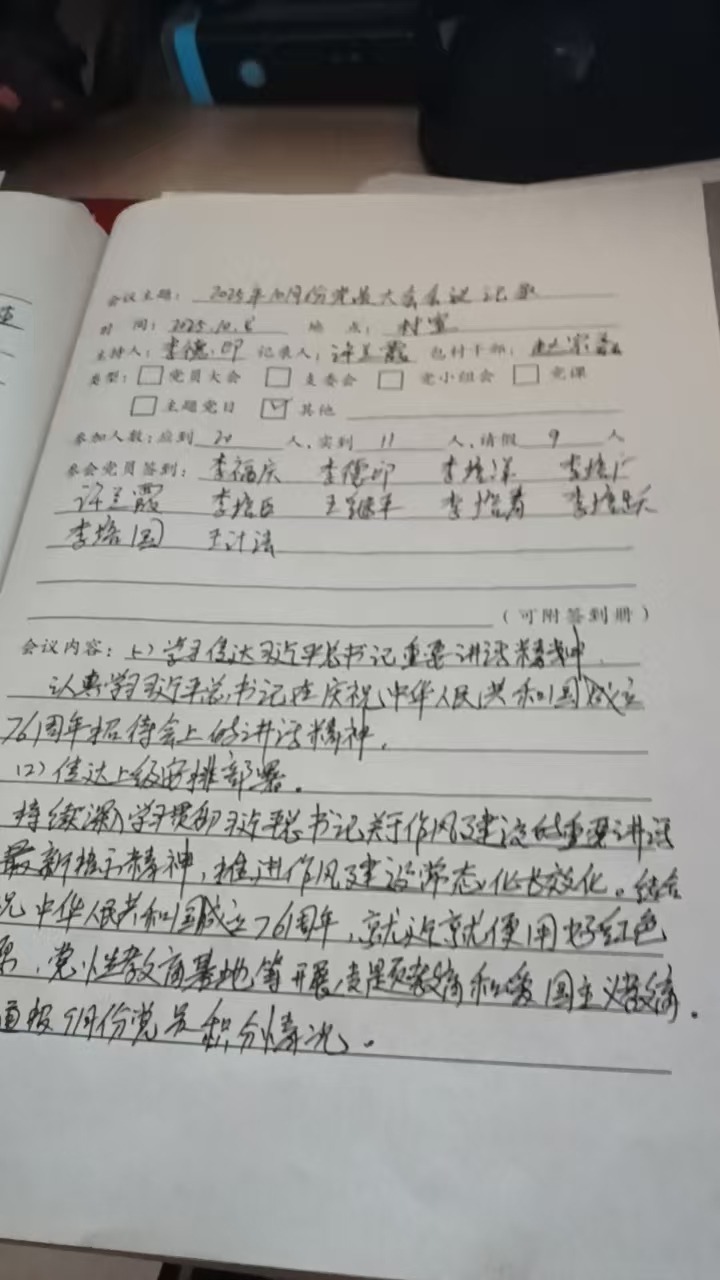 会议主题：2025年10月份党员大会会议记录
时 间：2025.10.8 地 点：村室
主持人：李德印 记录人：许兰霞 包村干部：
类型：□党员大会 □支委会 □党小组会 □党课
□主题党日 ☑其他
参加人数：应到 20 人，实到 11 人，请假 9 人
参会党员签到：李福庆 李德印 李培洋 李培广
许兰霞 李培臣 王继平 李培
李培国 王计法
（可附签到册）
会议内容：(1)学习传达习近平总书记重要讲话精神.
认真学习习近平总书记在庆祝中华人民共和国成立
76周年招待会上的讲话精神.
(2)传达上级安排部署.
持续深入学习贯彻习近平总书记关于作风建设的重要讲话
最新指示精神，推进作风建设常态化长效化。结合
况中华人民共和国成立76周年，就近就便用好红色
，党性教育基地等开展专题教育和爱国主义教育.
通报9月份党员积分情况。